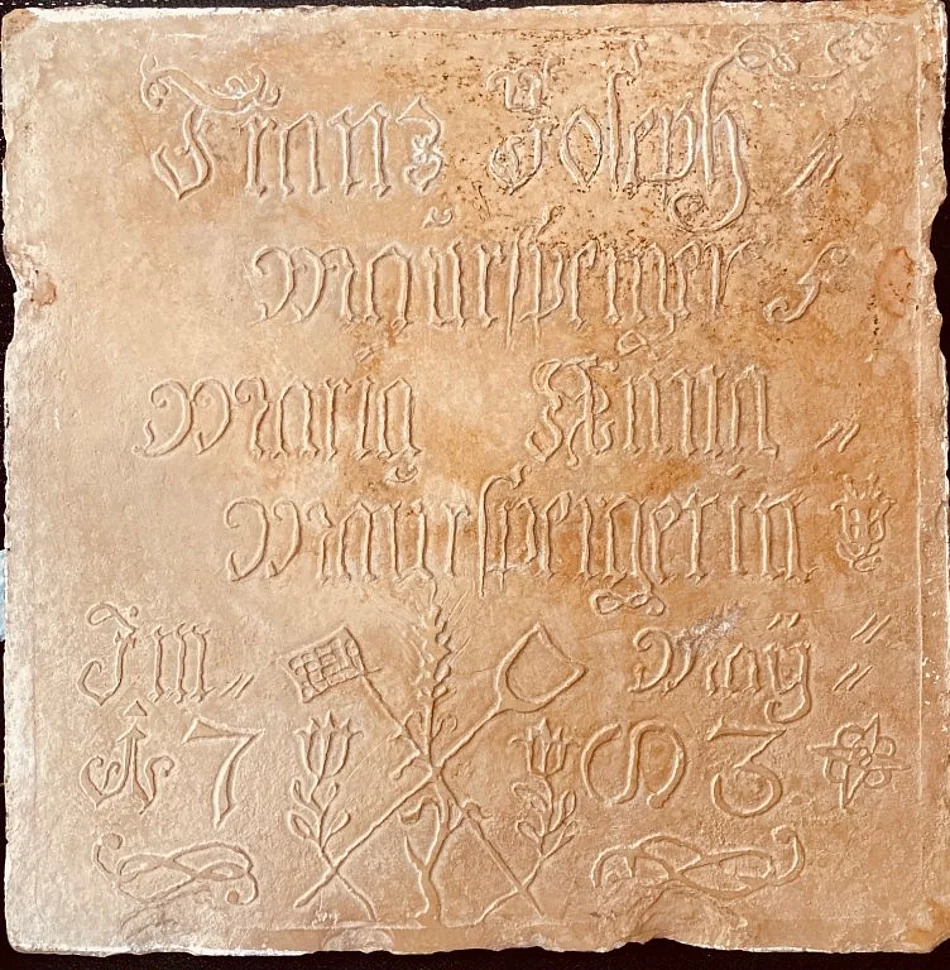 Franz Joseph〃
Maŭrsperger f
Maria Anna〃
Maÿrspergerin
Jm〃 Maÿ〃
1783